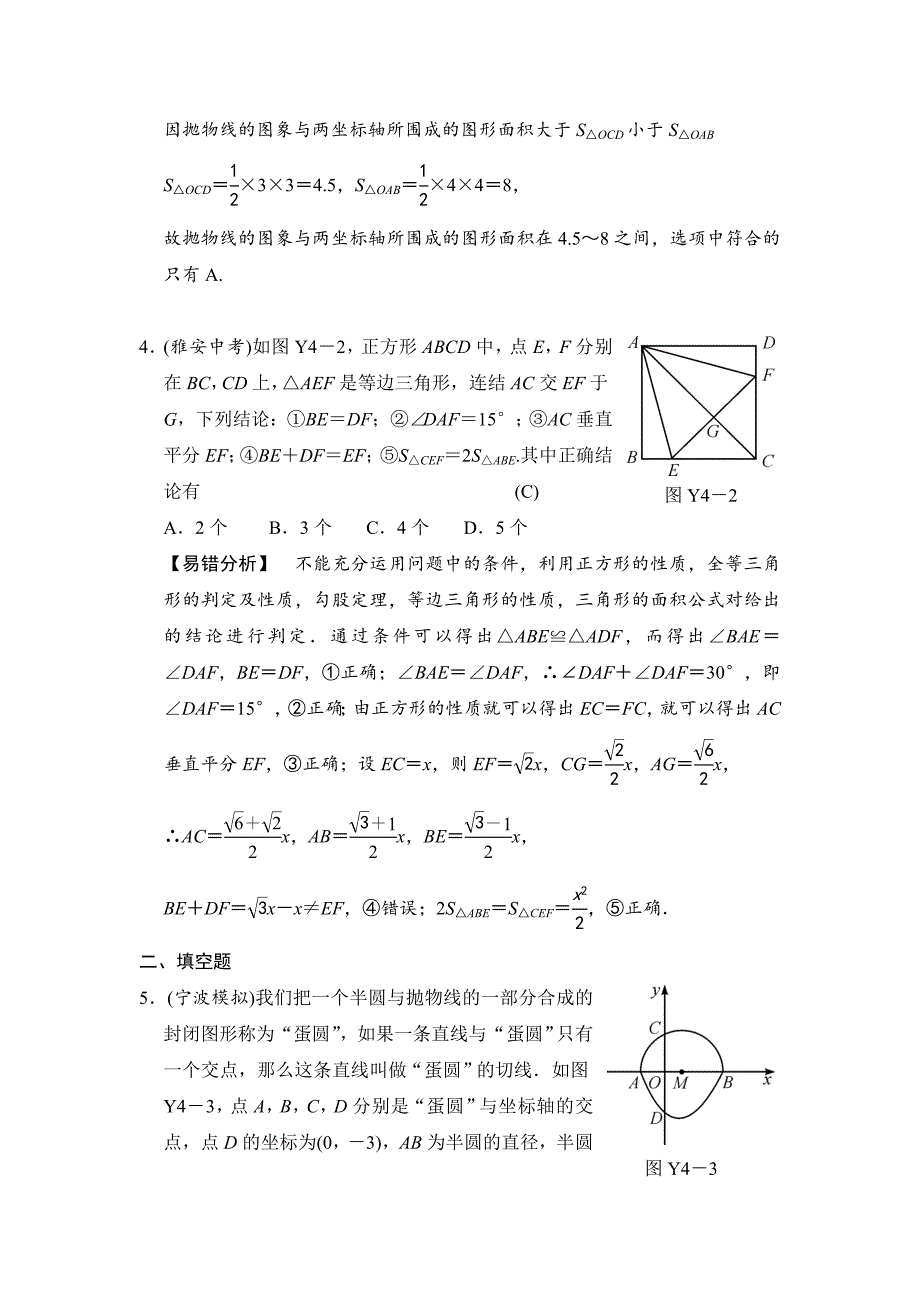 因抛物线的图象与两坐标轴所围成的图形面积大于 S△OCD 小于 S△OAB
S△OCD＝1/2×3×3＝4.5，S△OAB＝1/2×4×4＝8，
故抛物线的图象与两坐标轴所围成的图形面积在 4.5～8 之间，选项中符合的
只有 A.
4．(雅安中考)如图 Y4－2，正方形 ABCD 中，点 E，F 分别
在 BC，CD 上，△AEF 是等边三角形，连结 AC 交 EF 于
G，下列结论：①BE＝DF；②∠DAF＝15°；③AC 垂直
平分 EF；④BE＋DF＝EF；⑤S△CEF＝2S△ABE.其中正确结
论有 (C)
A
D
F
G
B
E
C
图 Y4－2
A．2 个 B．3 个 C．4 个 D．5 个
【易错分析】 不能充分运用问题中的条件，利用正方形的性质，全等三角
形的判定及性质，勾股定理，等边三角形的性质，三角形的面积公式对给出
的结论进行判定．通过条件可以得出△ABE≌△ADF，而得出∠BAE＝
∠DAF，BE＝DF，①正确；∠BAE＝∠DAF，∴∠DAF＋∠DAF＝30°，即
∠DAF＝15°，②正确；由正方形的性质就可以得出 EC＝FC，就可以得出 AC
垂直平分 EF，③正确；设 EC＝x，则 EF＝√2x，CG＝√2/2x，AG＝√6/2x，
∴AC＝(√6＋√2)/2x，AB＝(√3＋1)/2x，BE＝(√3－1)/2x，
BE＋DF＝√3x－x≠EF，④错误；2S△ABE＝S△CEF＝x²/2，⑤正确．
二、填空题
5．(宁波模拟)我们把一个半圆与抛物线的一部分合成的
封闭图形称为“蛋圆”，如果一条直线与“蛋圆”只有
一个交点，那么这条直线叫做“蛋圆”的切线．如图
Y4－3，点 A，B，C，D 分别是“蛋圆”与坐标轴的交
点，点 D 的坐标为(0，－3)，AB 为半圆的直径，半圆
y
C
A
O
M
B
x
D
图 Y4－3